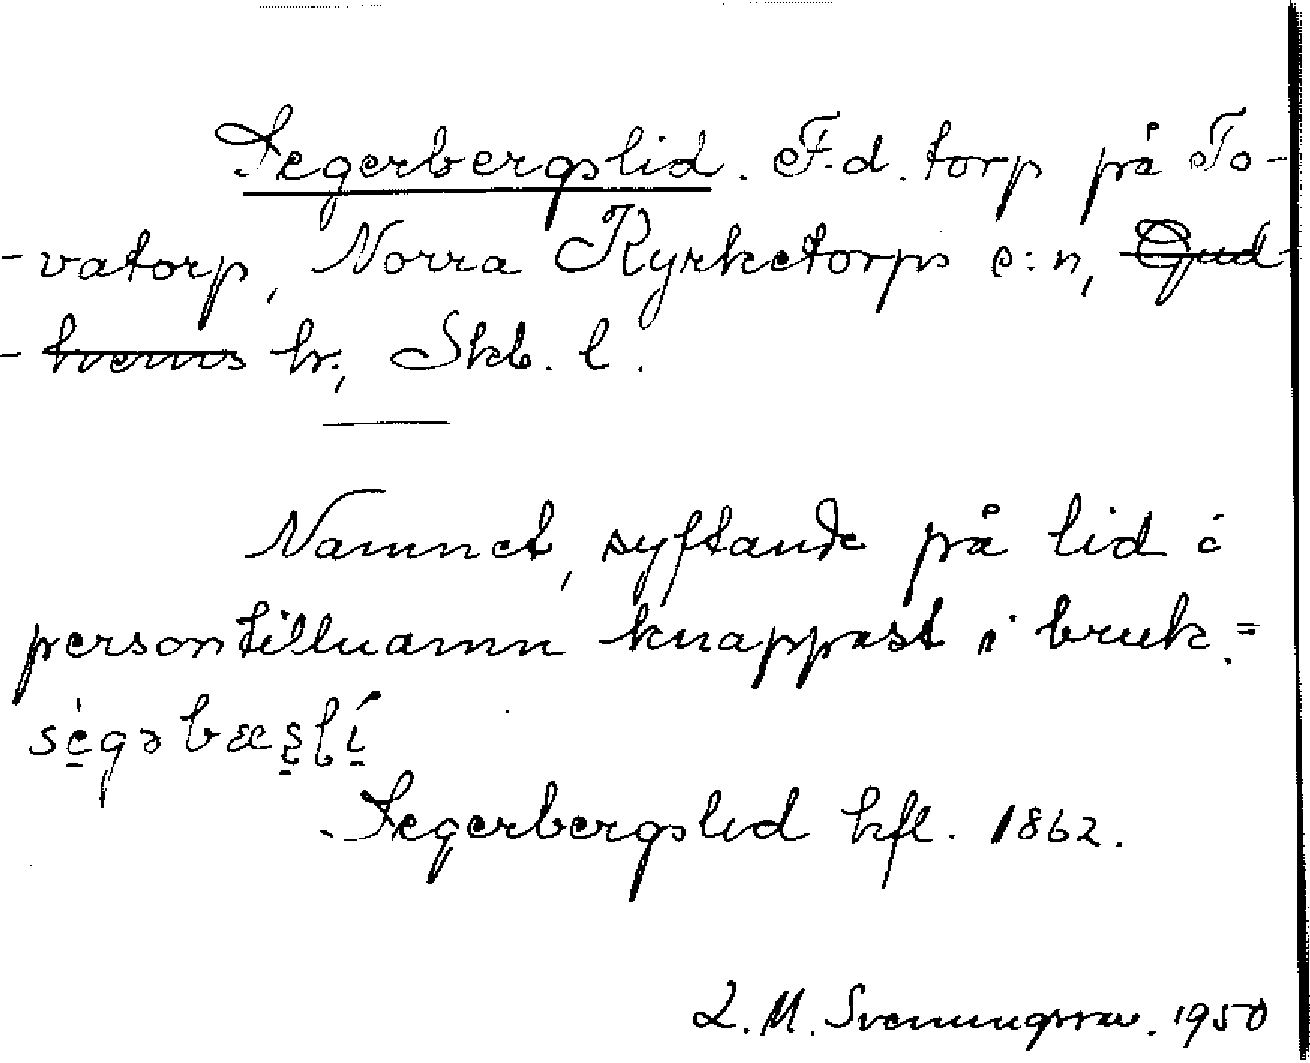 Segerbergslid. F.d. torp på To-
-vatorp, Norra Kyrketorps s:n, Gud-
-hems hr, Skb. l.
Namnet, syftande på lid o
persontillnamn knappast i bruk. =
Segerbergslid hfl. 1862.
L. M. Svenungsson. 1950